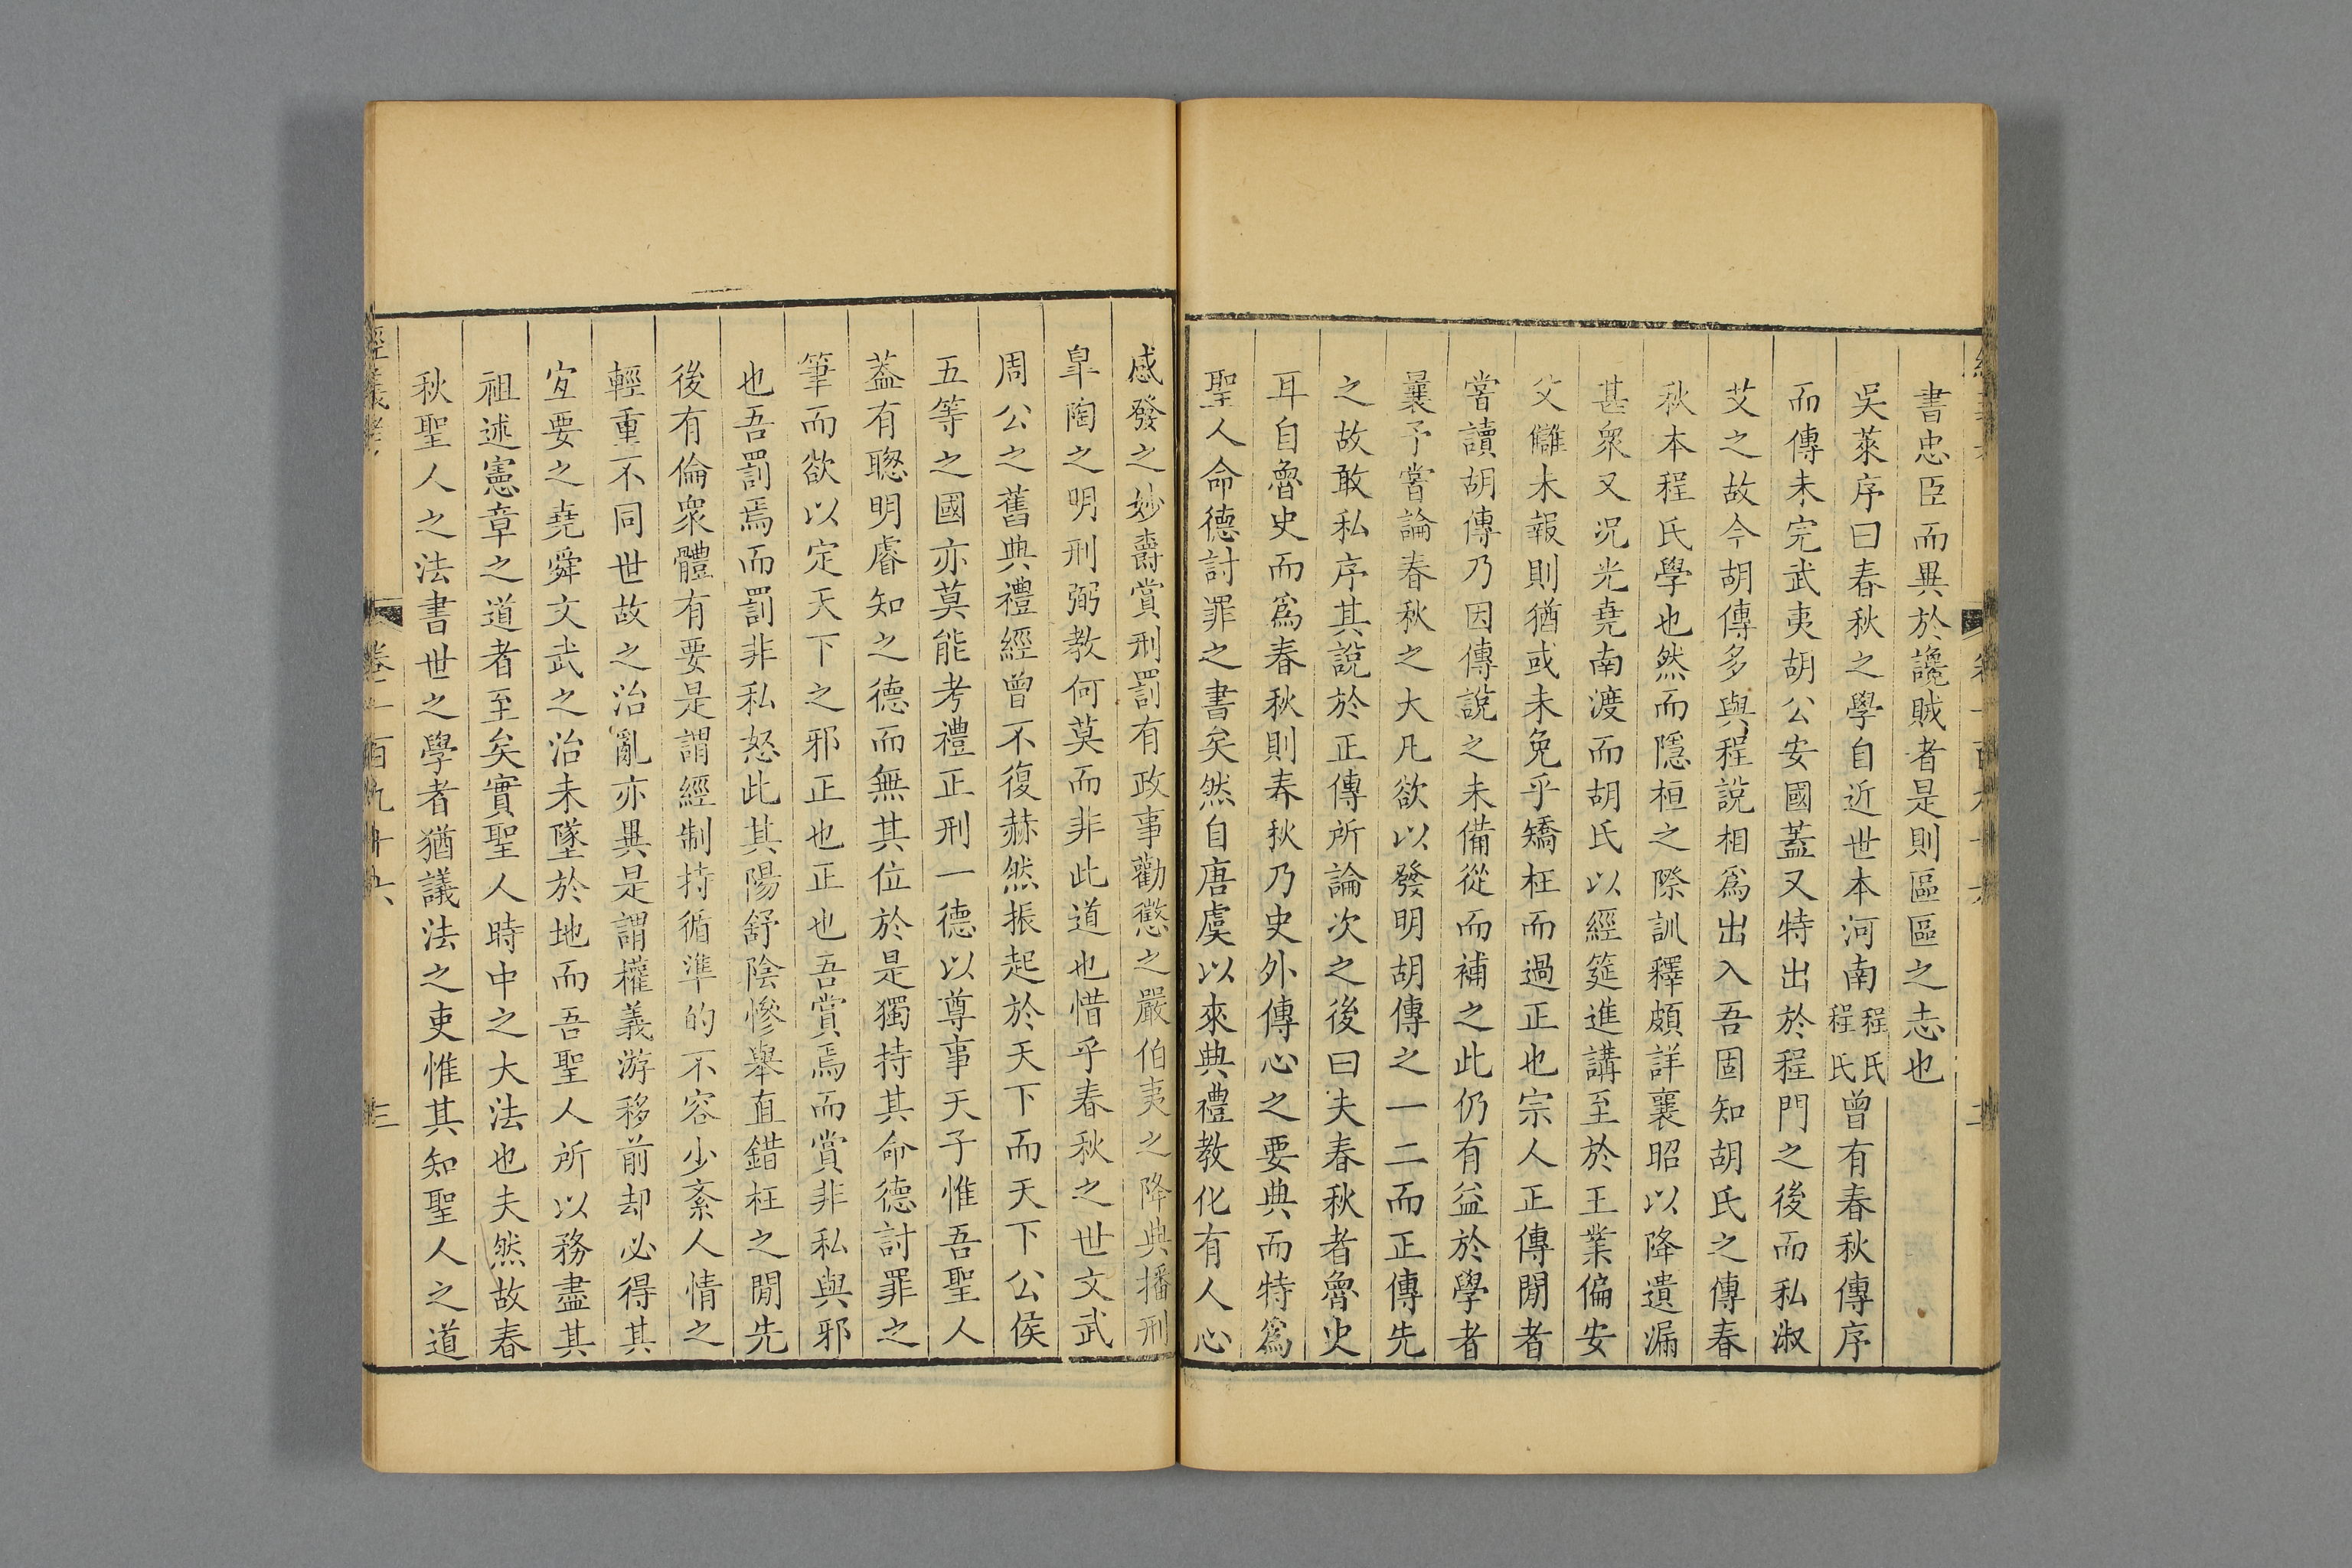 書忠臣而異於讒賊者是則區區之志也
吳萊序曰春秋之學自近世本河南程氏程氏曾有春秋傳序
而傳未完武夷胡公安國蓋又特出於程門之後而私淑
艾之故今胡傳多與程說相爲出入吾固知胡氏之傳春
秋本程氏學也然而隱桓之際訓釋頗詳襄昭以降遺漏
甚衆又况光堯南渡而胡氏以經筵進講至於王業偏安
父讎未報則猶或未免乎矯枉而過正也宗人正傳閒者
嘗讀胡傳乃因傳說之未備從而補之此仍有益於學者
曩予嘗論春秋之大凡欲以發明胡傳之一二而正傳先
之故敢私序其說於正傳所論次之後曰夫春秋者魯史
耳自魯史而爲春秋則春秋乃史外傳心之要典而特爲
聖人命德討罪之書矣然自唐虞以來典禮教化有人心
感發之妙爵賞刑罰有政事勸懲之嚴伯夷之降典播刑
臯陶之明刑弼教何莫而非此道也惜乎春秋之世文武
周公之舊典禮經曾不復赫然振起於天下而天下公侯
五等之國亦莫能考禮正刑一德以尊事天子惟吾聖人
蓋有聰明睿知之德而無其位於是獨持其命德討罪之
筆而欲以定天下之邪正也正也吾賞焉而賞非私與邪
也吾罰焉而罰非私怒此其陽舒陰慘舉直錯枉之閒先
後有倫衆體有要是謂經制持循準的不容少紊人情之
輕重不同世故之治亂亦異是謂權義游移前却必得其
宜要之堯舜文武之治未墜於地而吾聖人所以務盡其
祖述憲章之道者至矣實聖人時中之大法也夫然故春
秋聖人之法書世之學者猶議法之吏惟其知聖人之道